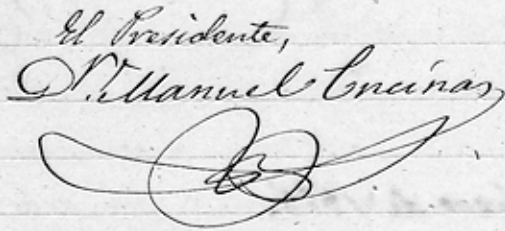 El Presidente,
Dr. Manuel Encinas